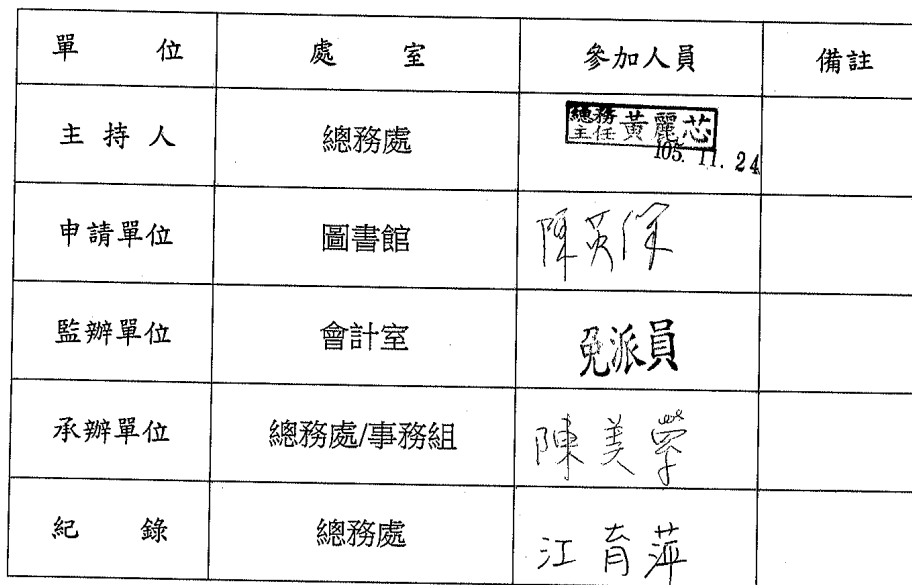 單 位 處 室 參加人員 備註
主 持 人 總務處 總務主任 黃麗芯
105. 11. 24
申請單位 圖書館 陳英保
監辦單位 會計室 免派員
承辦單位 總務處/事務組 陳美
紀 錄 總務處 江育萍